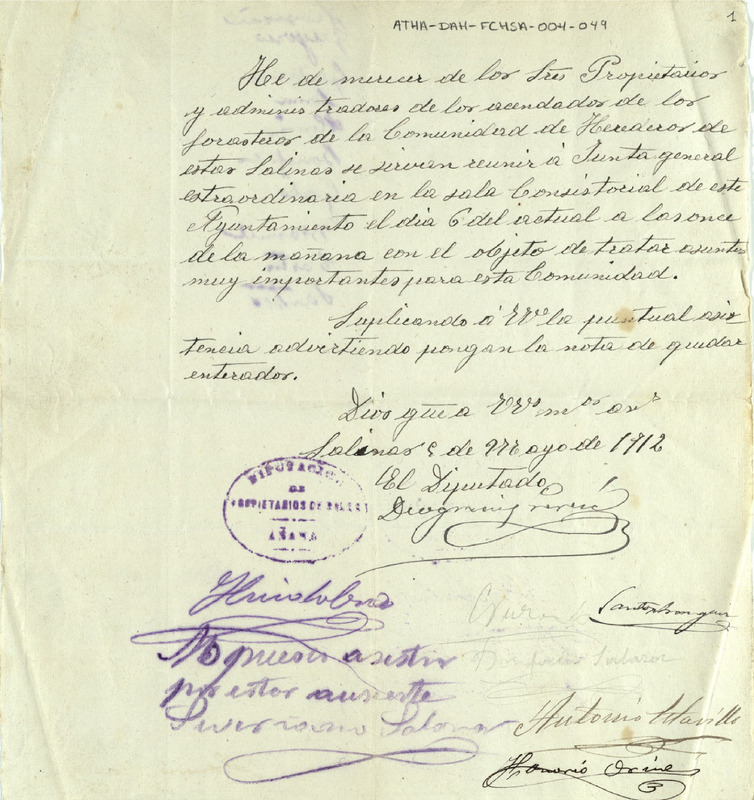 ATHA-DAH-FCHSA-004-049
1
He de merecer de los Sres Propietarios
y administradores de los acendados de los
forasteros de la Comunidad de Herederos de
estas Salinas se sirvan reunir á Junta general
extraordinaria en la sala Consistorial de este
Ayuntamiento el dia 6 del actual a las once
de la mañana con el objeto de tratar asuntos
muy importantes para esta Comunidad.
Suplicando á VVs la puntual asis-
tencia advirtiendo pongan la nota de quedar
enterados.
Dios gūe a VVs ms as
Salinas 5 de Mayo de 1912
El Diputado
DIPUTACIÓN
DE
PROPIETARIOS DE
AÑANA
No puedo asistir
por estar ausente
Severiano Salazar
Salazar
Antonio
Honorio